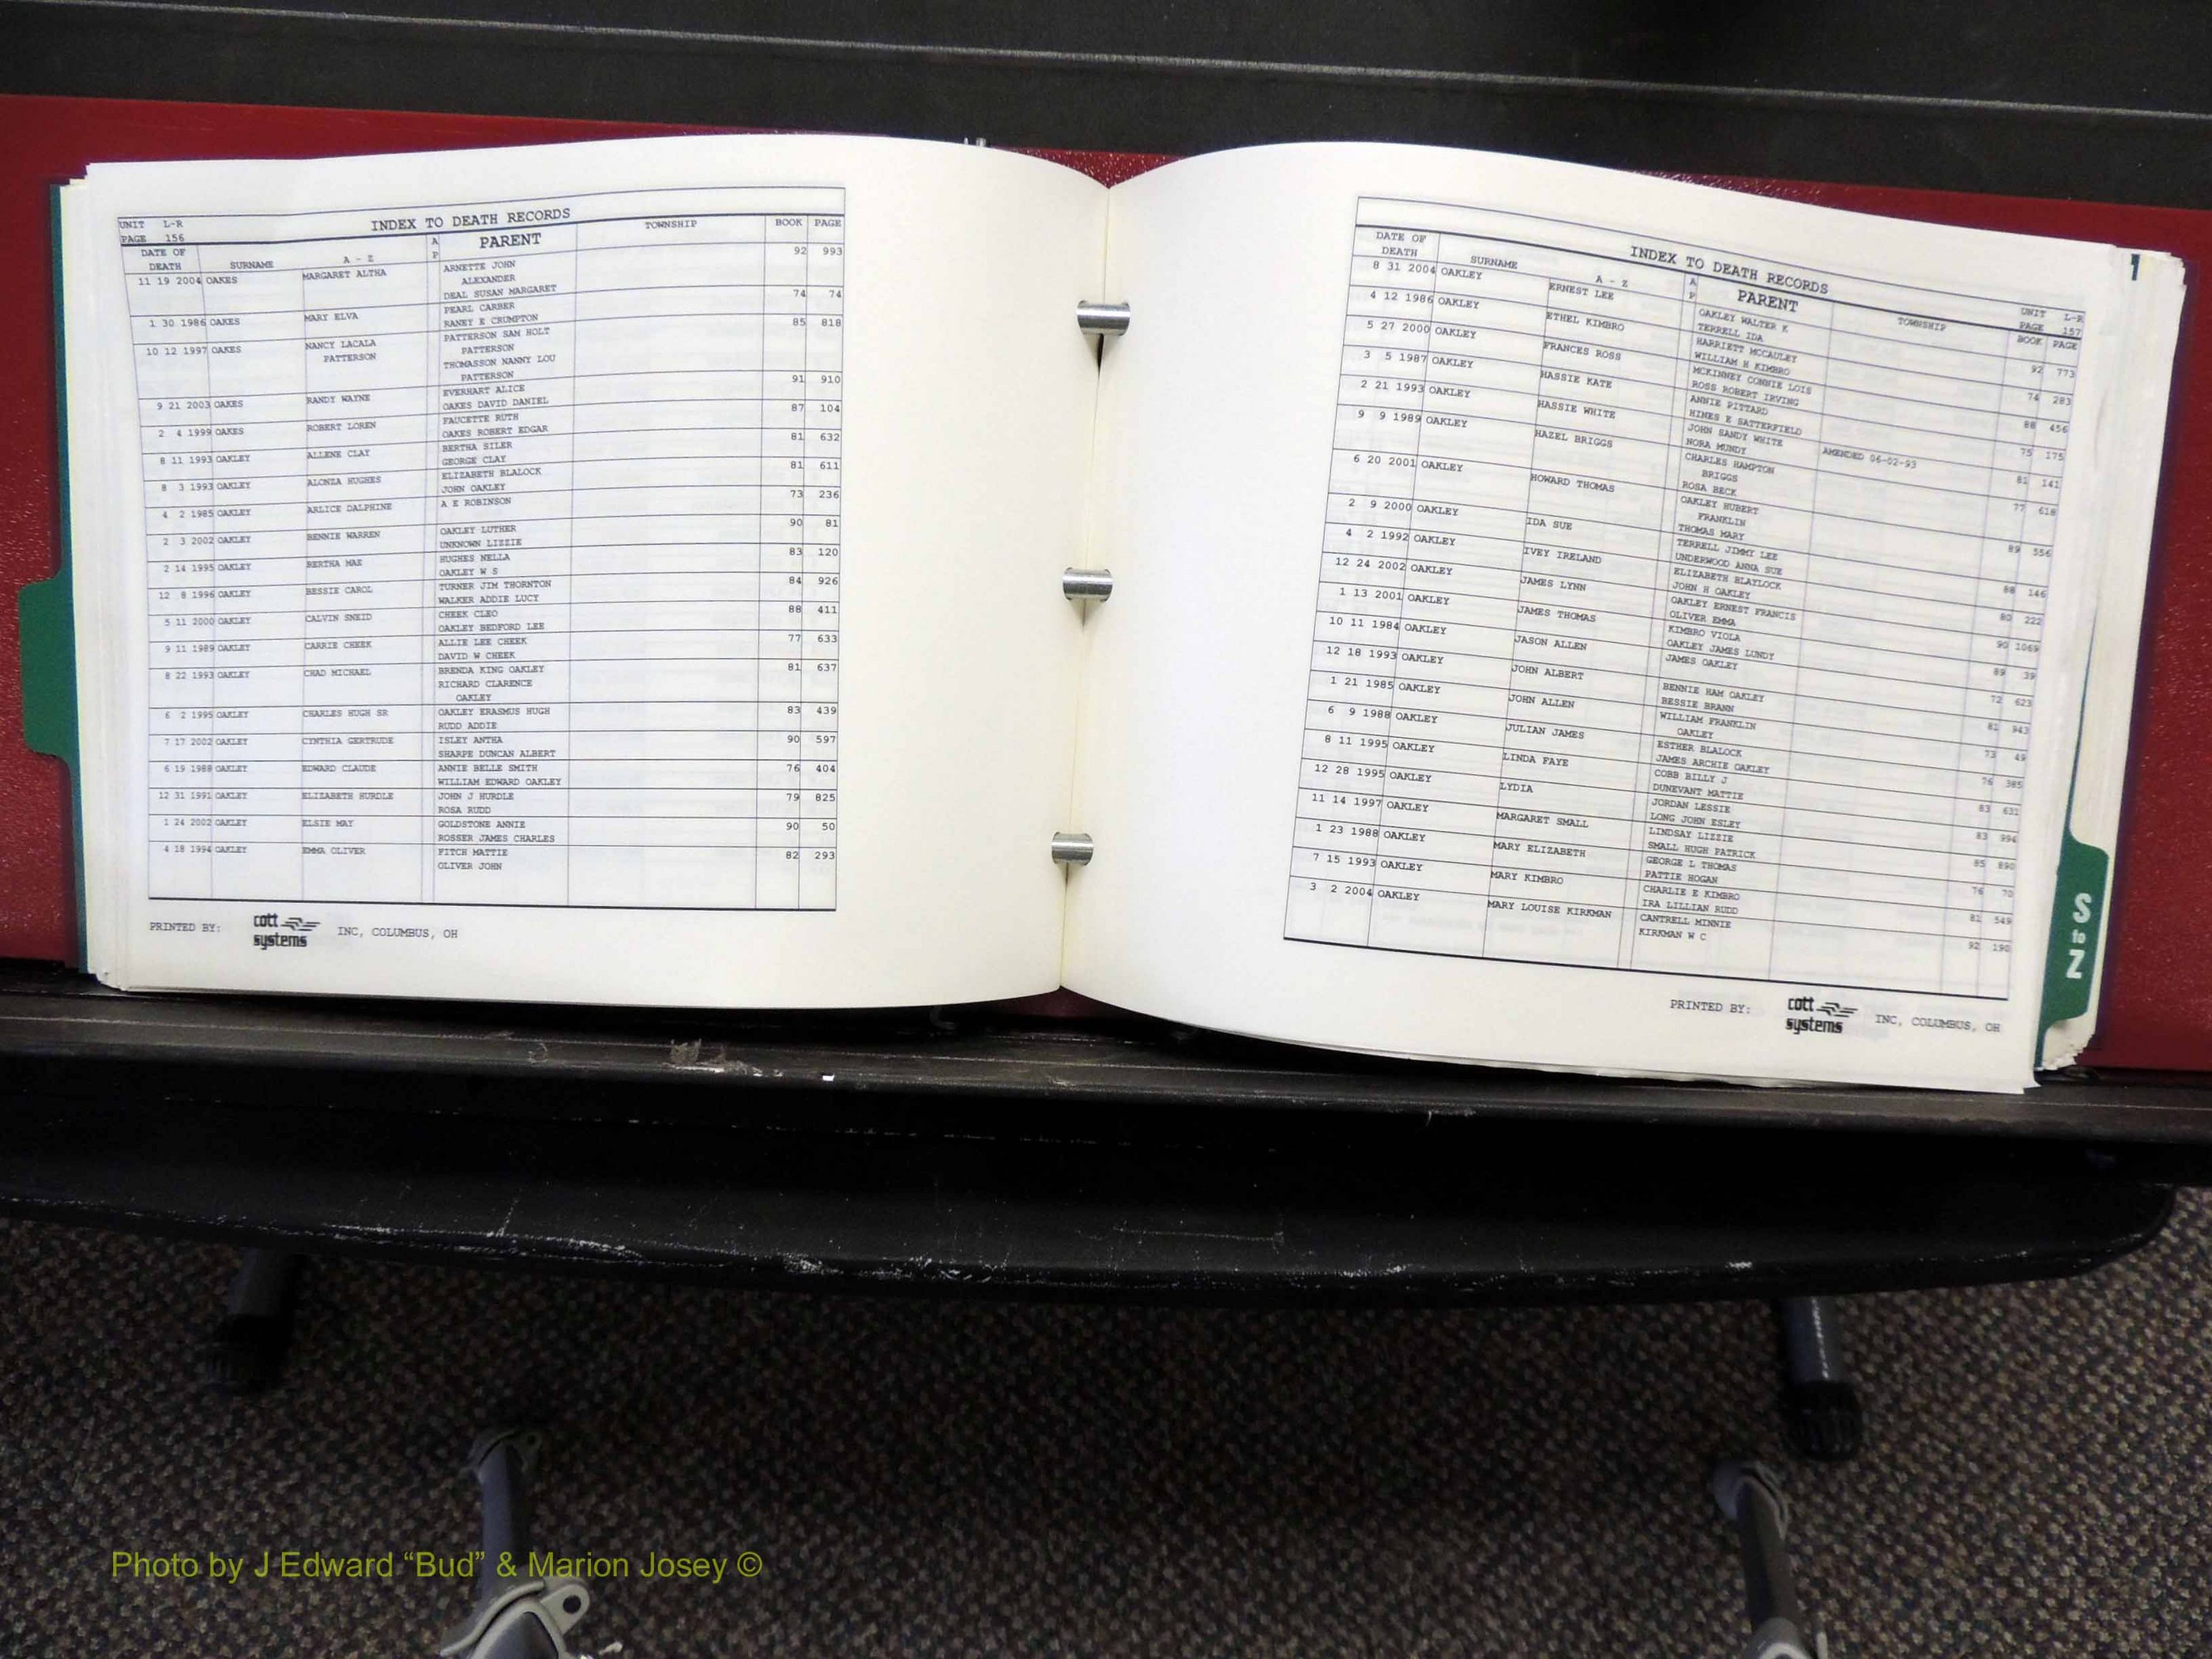 UNIT L-R INDEX TO DEATH RECORDS
PAGE 156
DATE OF DEATH SURNAME A - Z A P PARENT TOWNSHIP BOOK PAGE
11 19 2004 OAKES MARGARET ALTHA ARNETTE JOHN 92 993
ALEXANDER
DEAL SUSAN MARGARET
1 30 1986 OAKES MARY ELVA PEARL CARBER 74 74
RANEY E CRUMPTON
10 12 1997 OAKES NANCY LACALA PATTERSON SAM HOLT 85 818
PATTERSON PATTERSON
THOMASSON NANNY LOU
PATTERSON
9 21 2003 OAKES RANDY WAYNE EVERHART ALICE 91 910
OAKES DAVID DANIEL
2 4 1999 OAKES ROBERT LOREN FAUCETTE RUTH 87 104
OAKES ROBERT EDGAR
8 11 1993 OAKLEY ALLENE CLAY BERTHA SILER 81 632
GEORGE CLAY
8 3 1993 OAKLEY ALONZA HUGHES ELIZABETH BLALOCK 81 611
JOHN OAKLEY
4 2 1985 OAKLEY ARLICE DALPHINE A E ROBINSON 73 236
2 3 2002 OAKLEY BENNIE WARREN OAKLEY LUTHER 90 81
UNKNOWN LIZZIE
2 14 1995 OAKLEY BERTHA MAE HUGHES NELLA 83 120
OAKLEY W S
12 8 1996 OAKLEY BESSIE CAROL TURNER JIM THORNTON 84 926
WALKER ADDIE LUCY
5 11 2000 OAKLEY CALVIN SNEID CHEEK CLEO 88 411
OAKLEY BEDFORD LEE
9 11 1989 OAKLEY CARRIE CHEEK ALLIE LEE CHEEK 77 633
DAVID W CHEEK
8 22 1993 OAKLEY CHAD MICHAEL BRENDA KING OAKLEY 81 637
RICHARD CLARENCE
OAKLEY
6 2 1995 OAKLEY CHARLES HUGH SR OAKLEY ERASMUS HUGH 83 439
RUDD ADDIE
7 17 2002 OAKLEY CYNTHIA GERTRUDE ISLEY ANTHA 90 597
SHARPE DUNCAN ALBERT
6 19 1988 OAKLEY EDWARD CLAUDE ANNIE BELLE SMITH 76 404
WILLIAM EDWARD OAKLEY
12 31 1991 OAKLEY ELIZABETH HURDLE JOHN J HURDLE 79 825
ROSA RUDD
1 24 2002 OAKLEY ELSIE MAY GOLDSTONE ANNIE 90 50
ROSSER JAMES CHARLES
4 18 1994 OAKLEY EMMA OLIVER FITCH MATTIE 82 293
OLIVER JOHN
PRINTED BY: cott systems INC, COLUMBUS, OH
INDEX TO DEATH RECORDS UNIT L-R
PAGE 157
DATE OF DEATH SURNAME A - Z A P PARENT TOWNSHIP BOOK PAGE
8 31 2004 OAKLEY ERNEST LEE OAKLEY WALTER K 92 773
TERRELL IDA
4 12 1986 OAKLEY ETHEL KIMBRO HARRIETT MCCAULEY 74 283
WILLIAM H KIMBRO
5 27 2000 OAKLEY FRANCES ROSS MCKINNEY CONNIE LOIS 88 456
ROSS ROBERT IRVING
3 5 1987 OAKLEY HASSIE KATE ANNIE PITTARD 75 175
HINES E SATTERFIELD
2 21 1993 OAKLEY HASSIE WHITE JOHN SANDY WHITE AMENDED 06-02-93 81 141
NORA MUNDY
9 9 1989 OAKLEY HAZEL BRIGGS CHARLES HAMPTON 77 618
BRIGGS
ROSA BECK
6 20 2001 OAKLEY HOWARD THOMAS OAKLEY HUBERT 89 556
FRANKLIN
THOMAS MARY
2 9 2000 OAKLEY IDA SUE TERRELL JIMMY LEE 88 146
UNDERWOOD ANNA SUE
4 2 1992 OAKLEY IVEY IRELAND ELIZABETH BLAYLOCK 80 222
JOHN H OAKLEY
12 24 2002 OAKLEY JAMES LYNN OAKLEY ERNEST FRANCIS 90 1069
OLIVER EMMA
1 13 2001 OAKLEY JAMES THOMAS KIMBRO VIOLA 89 39
OAKLEY JAMES LUNDY
10 11 1984 OAKLEY JASON ALLEN JAMES OAKLEY 72 623
12 18 1993 OAKLEY JOHN ALBERT BENNIE HAM OAKLEY 81 943
BESSIE BRANN
1 21 1985 OAKLEY JOHN ALLEN WILLIAM FRANKLIN 73 49
OAKLEY
6 9 1988 OAKLEY JULIAN JAMES ESTHER BLALOCK 76 385
JAMES ARCHIE OAKLEY
8 11 1995 OAKLEY LINDA FAYE COBB BILLY J 83 631
DUNEVANT MATTIE
12 28 1995 OAKLEY LYDIA JORDAN LESSIE 83 994
LONG JOHN ESLEY
11 14 1997 OAKLEY MARGARET SMALL LINDSAY LIZZIE 85 890
SMALL HUGH PATRICK
1 23 1988 OAKLEY MARY ELIZABETH GEORGE L THOMAS 76 70
PATTIE HOGAN
7 15 1993 OAKLEY MARY KIMBRO CHARLIE E KIMBRO 81 549
IRA LILLIAN RUDD
3 2 2004 OAKLEY MARY LOUISE KIRKMAN CANTRELL MINNIE 92 190
KIRKMAN W C
PRINTED BY: cott systems INC, COLUMBUS, OH
S
to
Z
Photo by J Edward “Bud” & Marion Josey ©